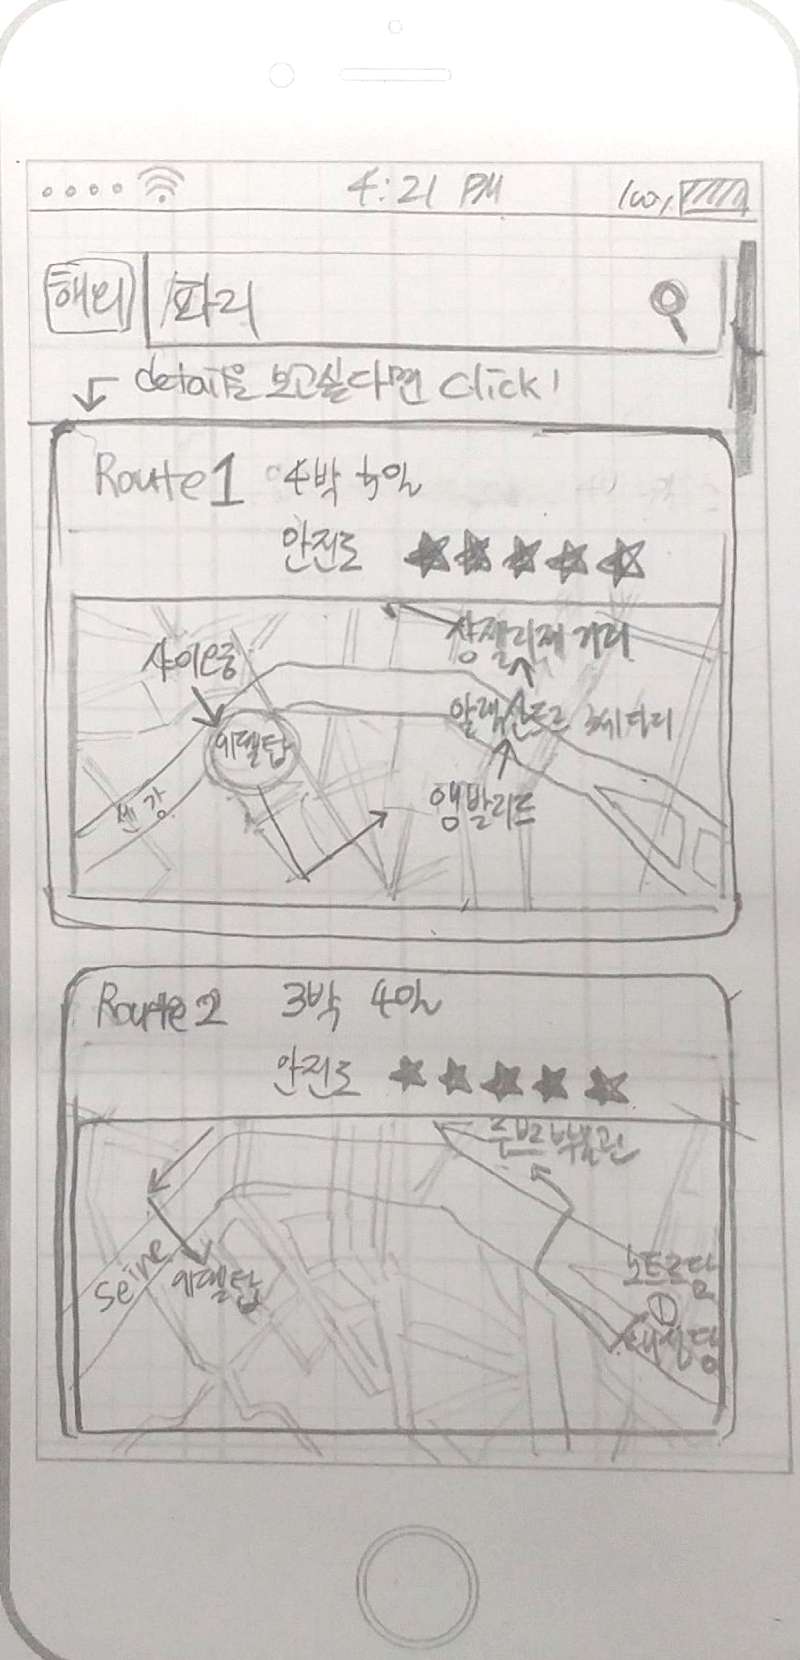 4:21 PM 100%
해외 파리
detail을 보고싶다면 click!
Route 1 4박 5일
안전도 ★★★★★
샹젤리제 거리
샤이요궁
알렉산드르 3세 다리
에펠탑
앵발리드
센 강
Route 2 3박 4일
안전도 ★★★★★
루브르 박물관
Seine
에펠탑
노트르담
①
대성당